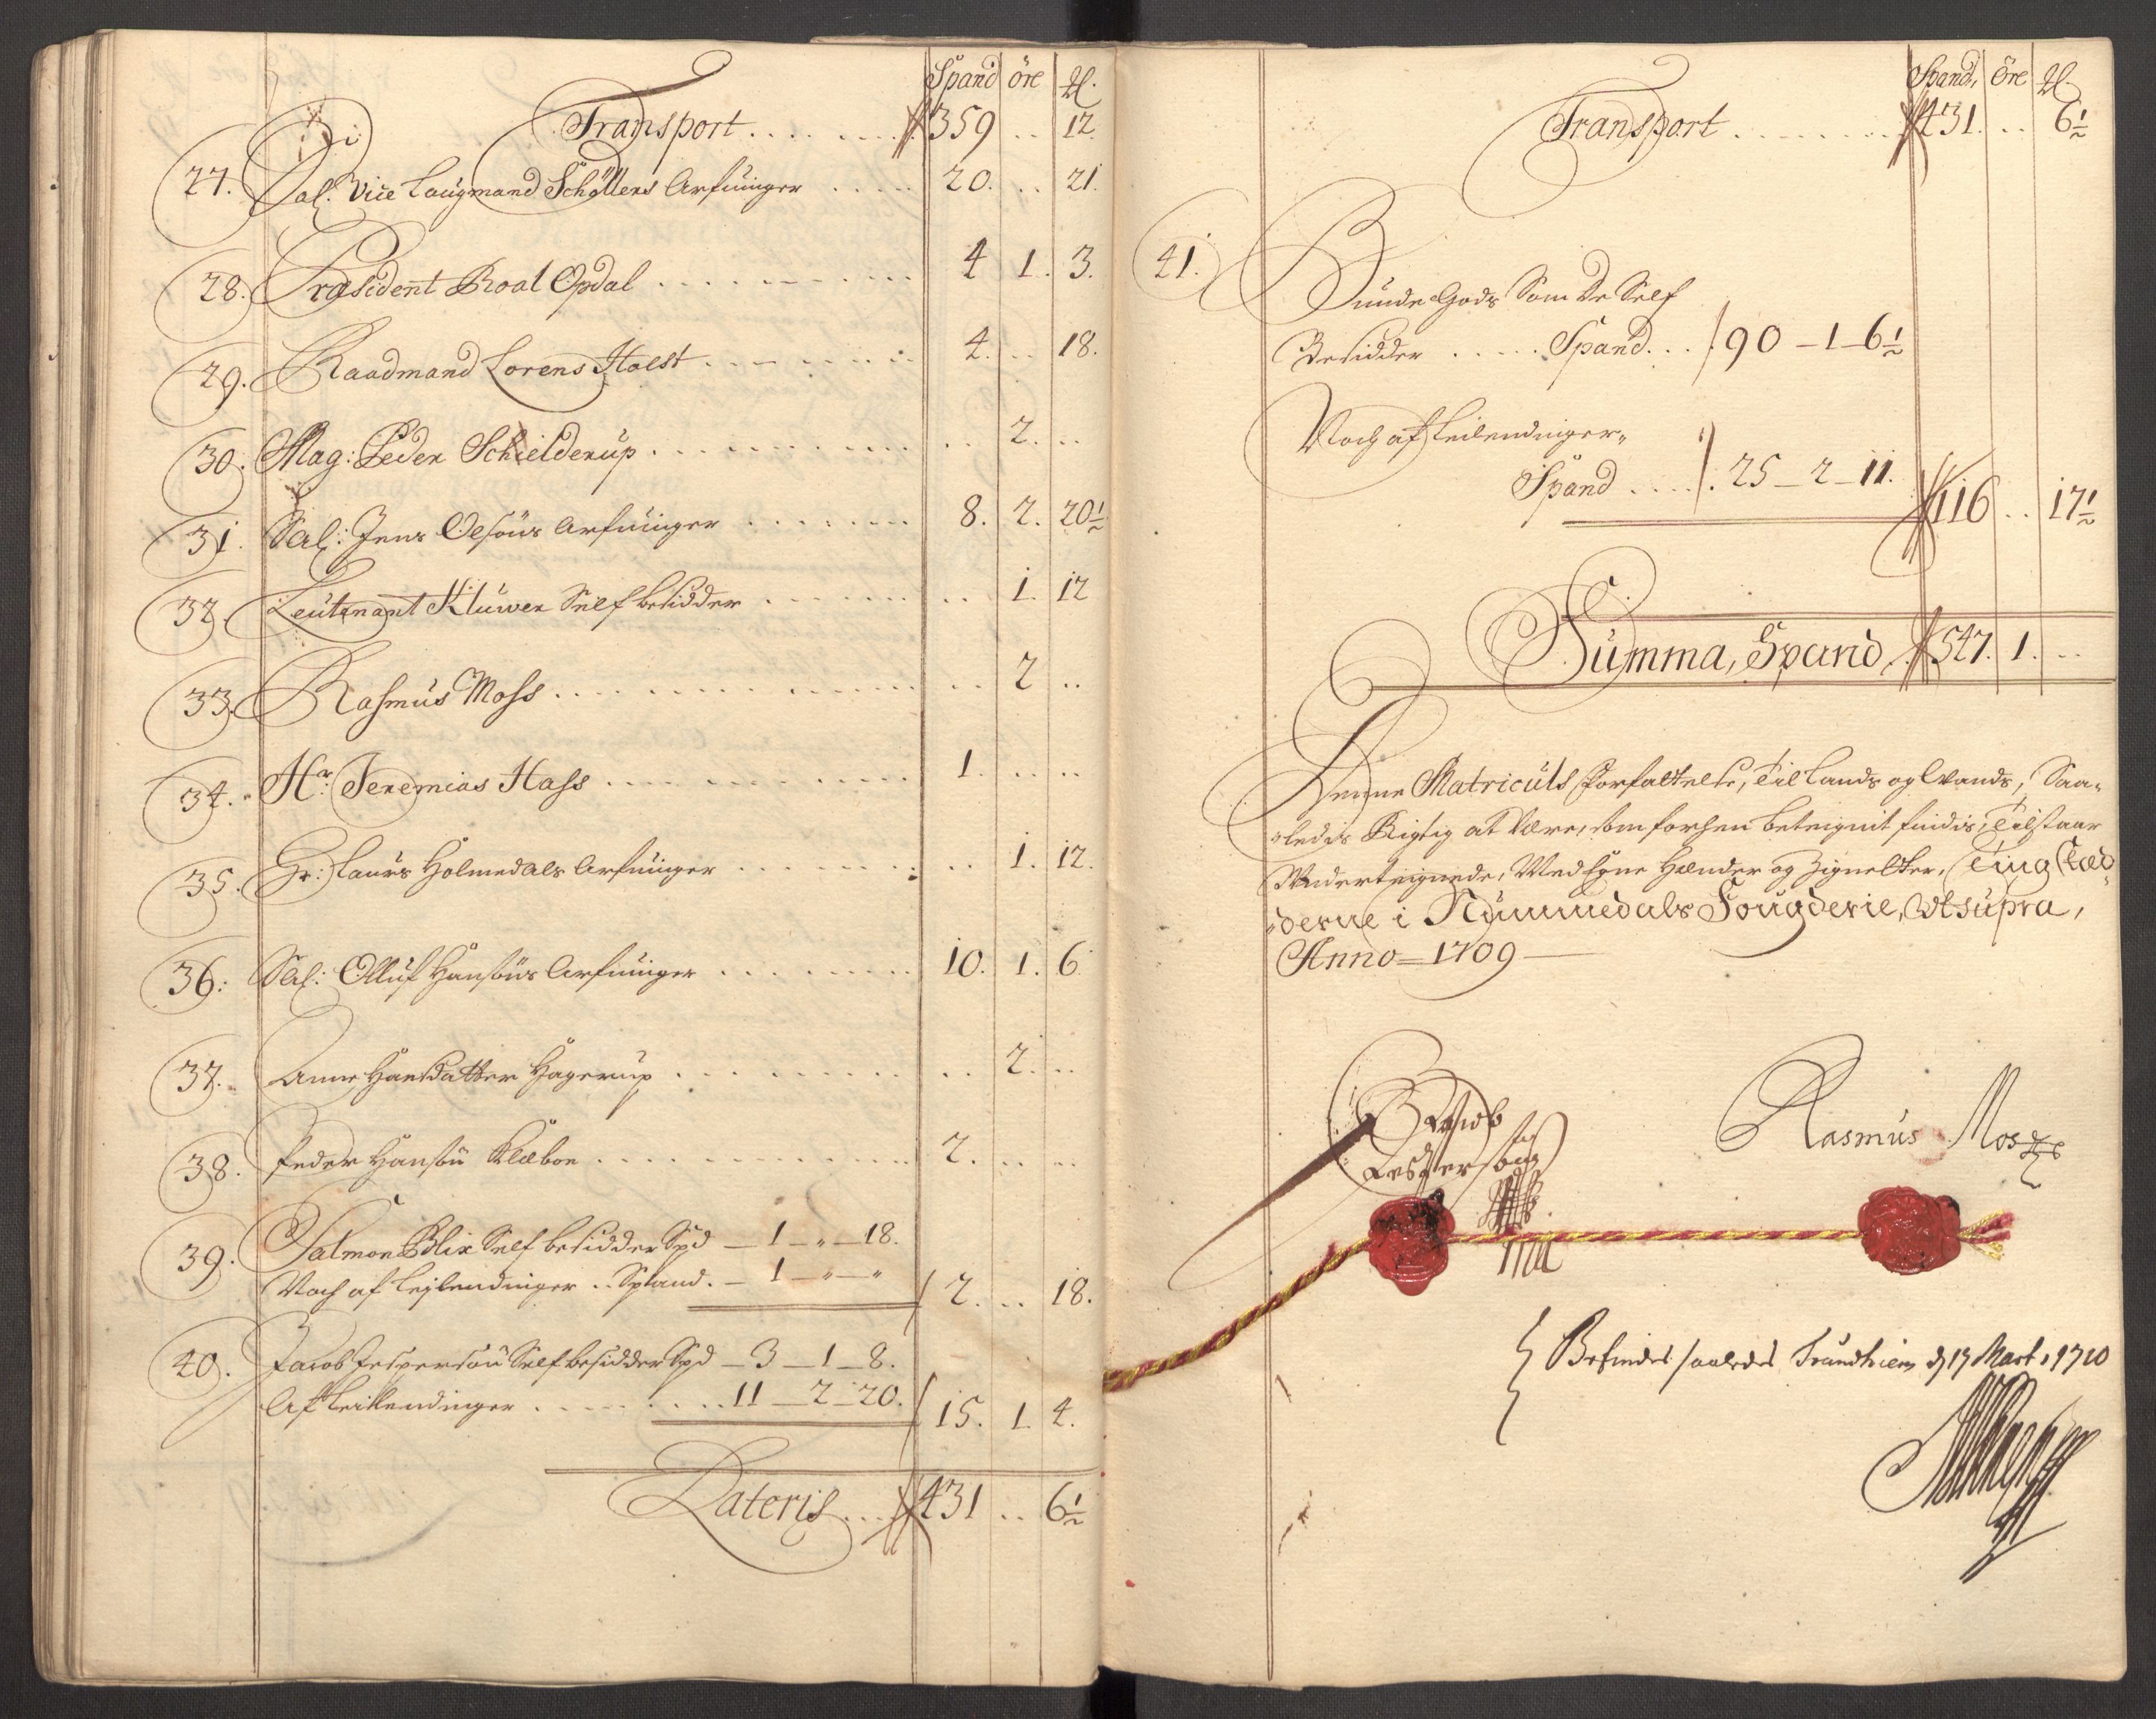 Spand öre
Transport . . . . . . . . 359 .. 12.
27. Sal. Vice Laugmand Schöllers Arfuinger . . . . . 20. .. 21.
28. Præsident Roal Opdal . . . . . . . . . 4 1. 3.
29. Raadmand Lorens Holst . . . . . . . . 4. .. 18.
30. Mag: Peder Schielderup . . . . . . . . .. 2. ..
31. Sal: Jens Olsöns Arfuinger . . . . . . . 8. 2. 20½
32. Leutenant Klüwer Self besidder . . . . . . . .. 1. 12
33. Rasmus Moss . . . . . . . . . . . . .. 2 ..
34. Hr: Jeremias Hass . . . . . . . . . . . 1. .. ..
35. Hr: Laurs Holmedals Arfuinger . . . . . . . .. 1. 12.
36: Sal: Olluf Hansöns Arfuinger . . . . . . . . 10. 1. 6
37. Anne Hansdatter Hagerup . . . . . . . . .. 2. ..
38. Peder Hansön Klæboe . . . . . . . . . . 2. .. ..
39. Salmon Blix Self besidder Spd – 1 – " – 18.
Noch af leylendinger .. Spand. – 1 – " – " 2. .. 18.
40. Jacob Jespersön Self besidder Spd – 3 – 1 – 8.
Af Leilendinger . . . . . . . . 11 – 2 – 20. 15. 1. 4.
Lateris . . . 431 .. 6½
Spand, Öre
Transport . . . . . . . 431. .. 6½
41. Bunde Gods Som De Self
Besidder . . . . . Spand. . . 90 – 1 – 6½
Noch af Leilendinger„
Spand . . . . 25 – 2 – 11. 116 .. 17½
Summa, Spand . 547. 1. ..
Denne Matriculs Forfattelse, Til Lands og Vands, Saa„
„ledis Rigtig at Være, som forhen beteignit findis, Tilstaar
Underteignede, Med Egne Hænder og Zignetter. Tingstæd„
„derne i Nummedals Fougderie, Ut supra,
Anno = 1709 –
Jacob
Jespersöng
Rasmus Moss
Befindes saaledes Trundhiem d 17 Mart. 1710